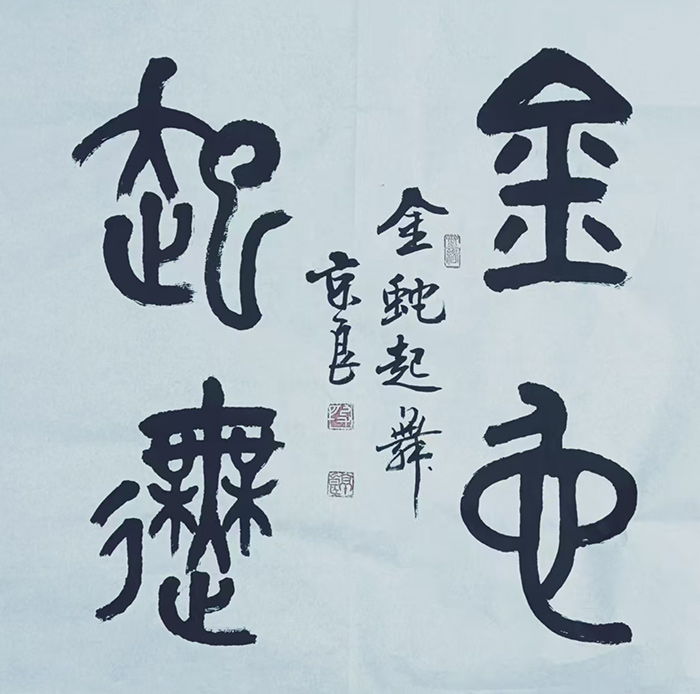 金蛇
起舞
金蛇起舞
京良